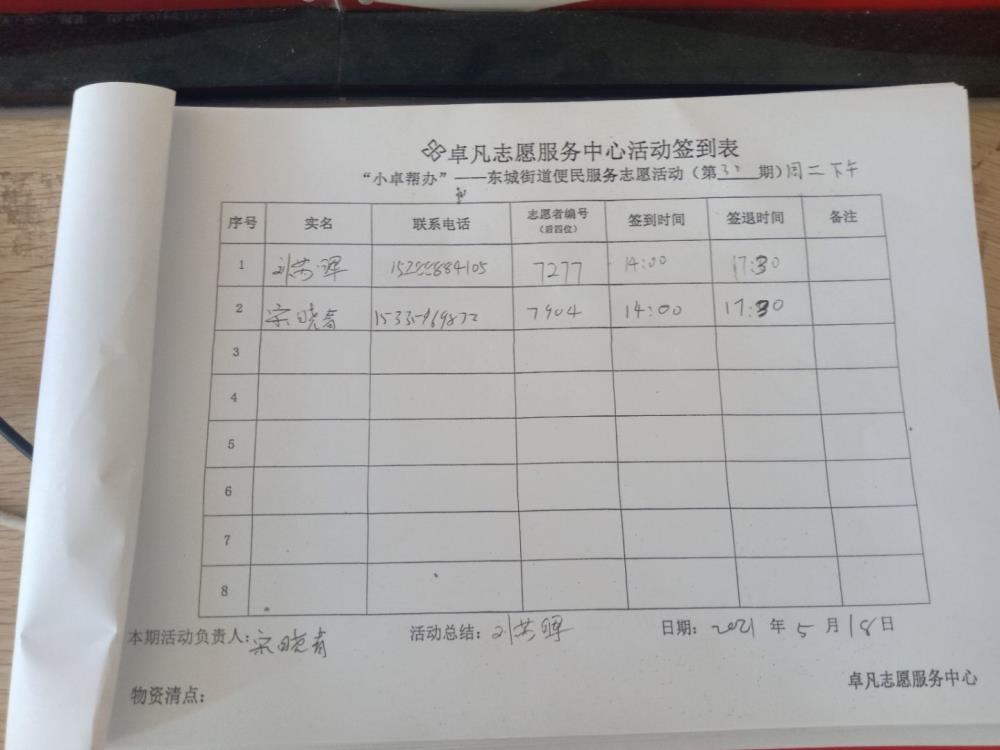 卓凡志愿服务中心活动签到表
“小卓帮办”——东城街道便民服务志愿活动（第 期）周二下午
序号 实名 联系电话 志愿者编号（后四位） 签到时间 签退时间 备注
1 刘 晖 15222884105 7277 14:00 17:30
2 宋晓青 7904 14:00 17:30
3
4
5
6
7
8
本期活动负责人：宋晓青 活动总结：刘 晖 日期：2021 年 5 月 18 日
物资清点：
卓凡志愿服务中心